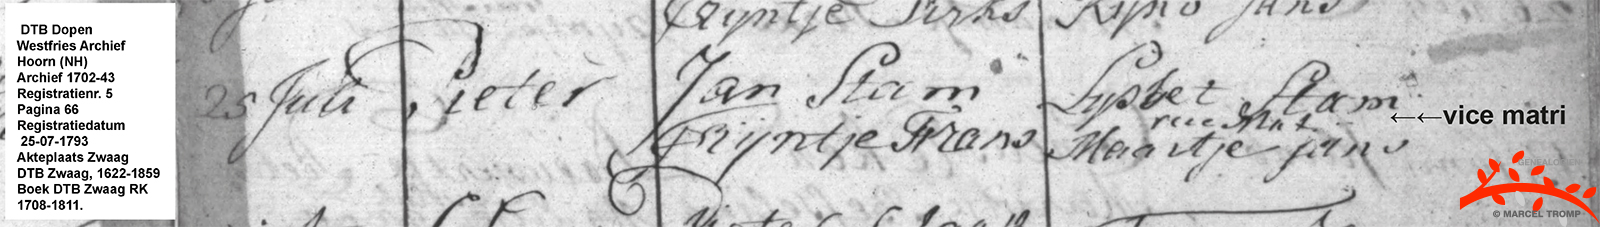 DTB Dopen
Westfries Archief
Hoorn (NH)
Archief 1702-43
Registratienr. 5
Pagina 66
Registratiedatum
25-07-1793
Akteplaats Zwaag
DTB Zwaag, 1622-1859
Boek DTB Zwaag RK
1708-1811.
Trijntje Dirks
25 Juli Pieter Jan Stam Lysbet Stam
Trijntje Frans Maartje jans
←←vice matri
GENEALO
© MARCEL TROMP